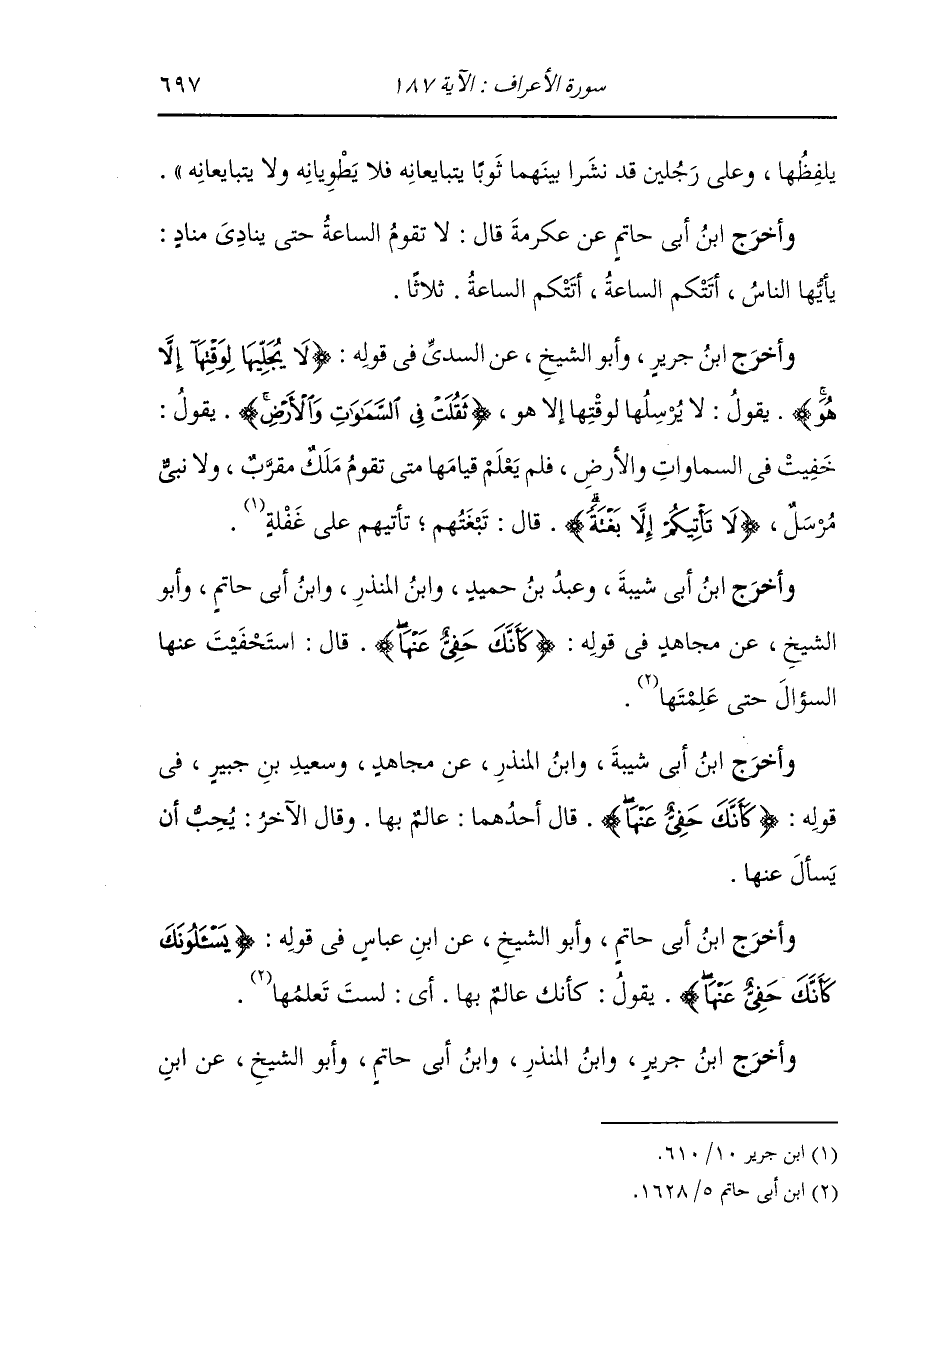 سورة الأعراف : الآية ١٨٧ ٦٩٧
يلفِظُها ، وعلى رَجُلين قد نشَرا بينَهما ثَوبًا يتبايعانِه فلا يَطْوِيانِه ولا يتبايعانِه » .
وأخرَج ابنُ أبى حاتمٍ عن عكرمةَ قال : لا تقومُ الساعةُ حتى ينادِىَ منادٍ :
يأيُّها الناسُ ، أتَتْكم الساعةُ ، أتَتْكم الساعةُ . ثلاثًا .
وأخرَج ابنُ جريرٍ ، وأبو الشيخِ ، عن السدىِّ فى قولِه : ﴿لَا يُجَلِّيهَا لِوَقْتِهَآ إِلَّا
هُوَۚ﴾ . يقولُ : لا يُرْسِلُها لوقْتِها إلا هو ، ﴿ثَقُلَتْ فِى ٱلسَّمَٰوَٰتِ وَٱلْأَرْضِۚ﴾ . يقولُ :
خَفِيتْ فى السماواتِ والأرضِ ، فلم يَعْلَمْ قيامَها متى تقومُ مَلَكٌ مقرَّبٌ ، ولا نبىٌّ
مُرْسَلٌ ، ﴿لَا تَأْتِيكُمْ إِلَّا بَغْتَةًۗ﴾ . قال : تَبْغَتُهم ؛ تأتيهم على غَفْلةٍ(١) .
وأخرَج ابنُ أبى شيبةَ ، وعبدُ بنُ حميدٍ ، وابنُ المنذرِ ، وابنُ أبى حاتمٍ ، وأبو
الشيخِ ، عن مجاهدٍ فى قولِه : ﴿كَأَنَّكَ حَفِىٌّ عَنْهَاۖ﴾ . قال : استَحْفَيْتَ عنها
السؤالَ حتى عَلِمْتَها(٢) .
وأخرَج ابنُ أبى شيبةَ ، وابنُ المنذرِ ، عن مجاهدٍ ، وسعيدِ بنِ جبيرٍ ، فى
قولِه : ﴿كَأَنَّكَ حَفِىٌّ عَنْهَاۖ﴾ . قال أحدُهما : عالمٌ بها . وقال الآخرُ : يُحِبُّ أن
يَسألَ عنها .
وأخرَج ابنُ أبى حاتمٍ ، وأبو الشيخِ ، عن ابنِ عباسٍ فى قولِه : ﴿يَسْـَٔلُونَكَ
كَأَنَّكَ حَفِىٌّ عَنْهَاۖ﴾ . يقولُ : كأنك عالمٌ بها . أى : لستَ تَعلمُها(٢) .
وأخرَج ابنُ جريرٍ ، وابنُ المنذرِ ، وابنُ أبى حاتمٍ ، وأبو الشيخِ ، عن ابنِ
(١) ابن جرير ١٠/ ٦١٠.
(٢) ابن أبى حاتم ٥/ ١٦٢٨.